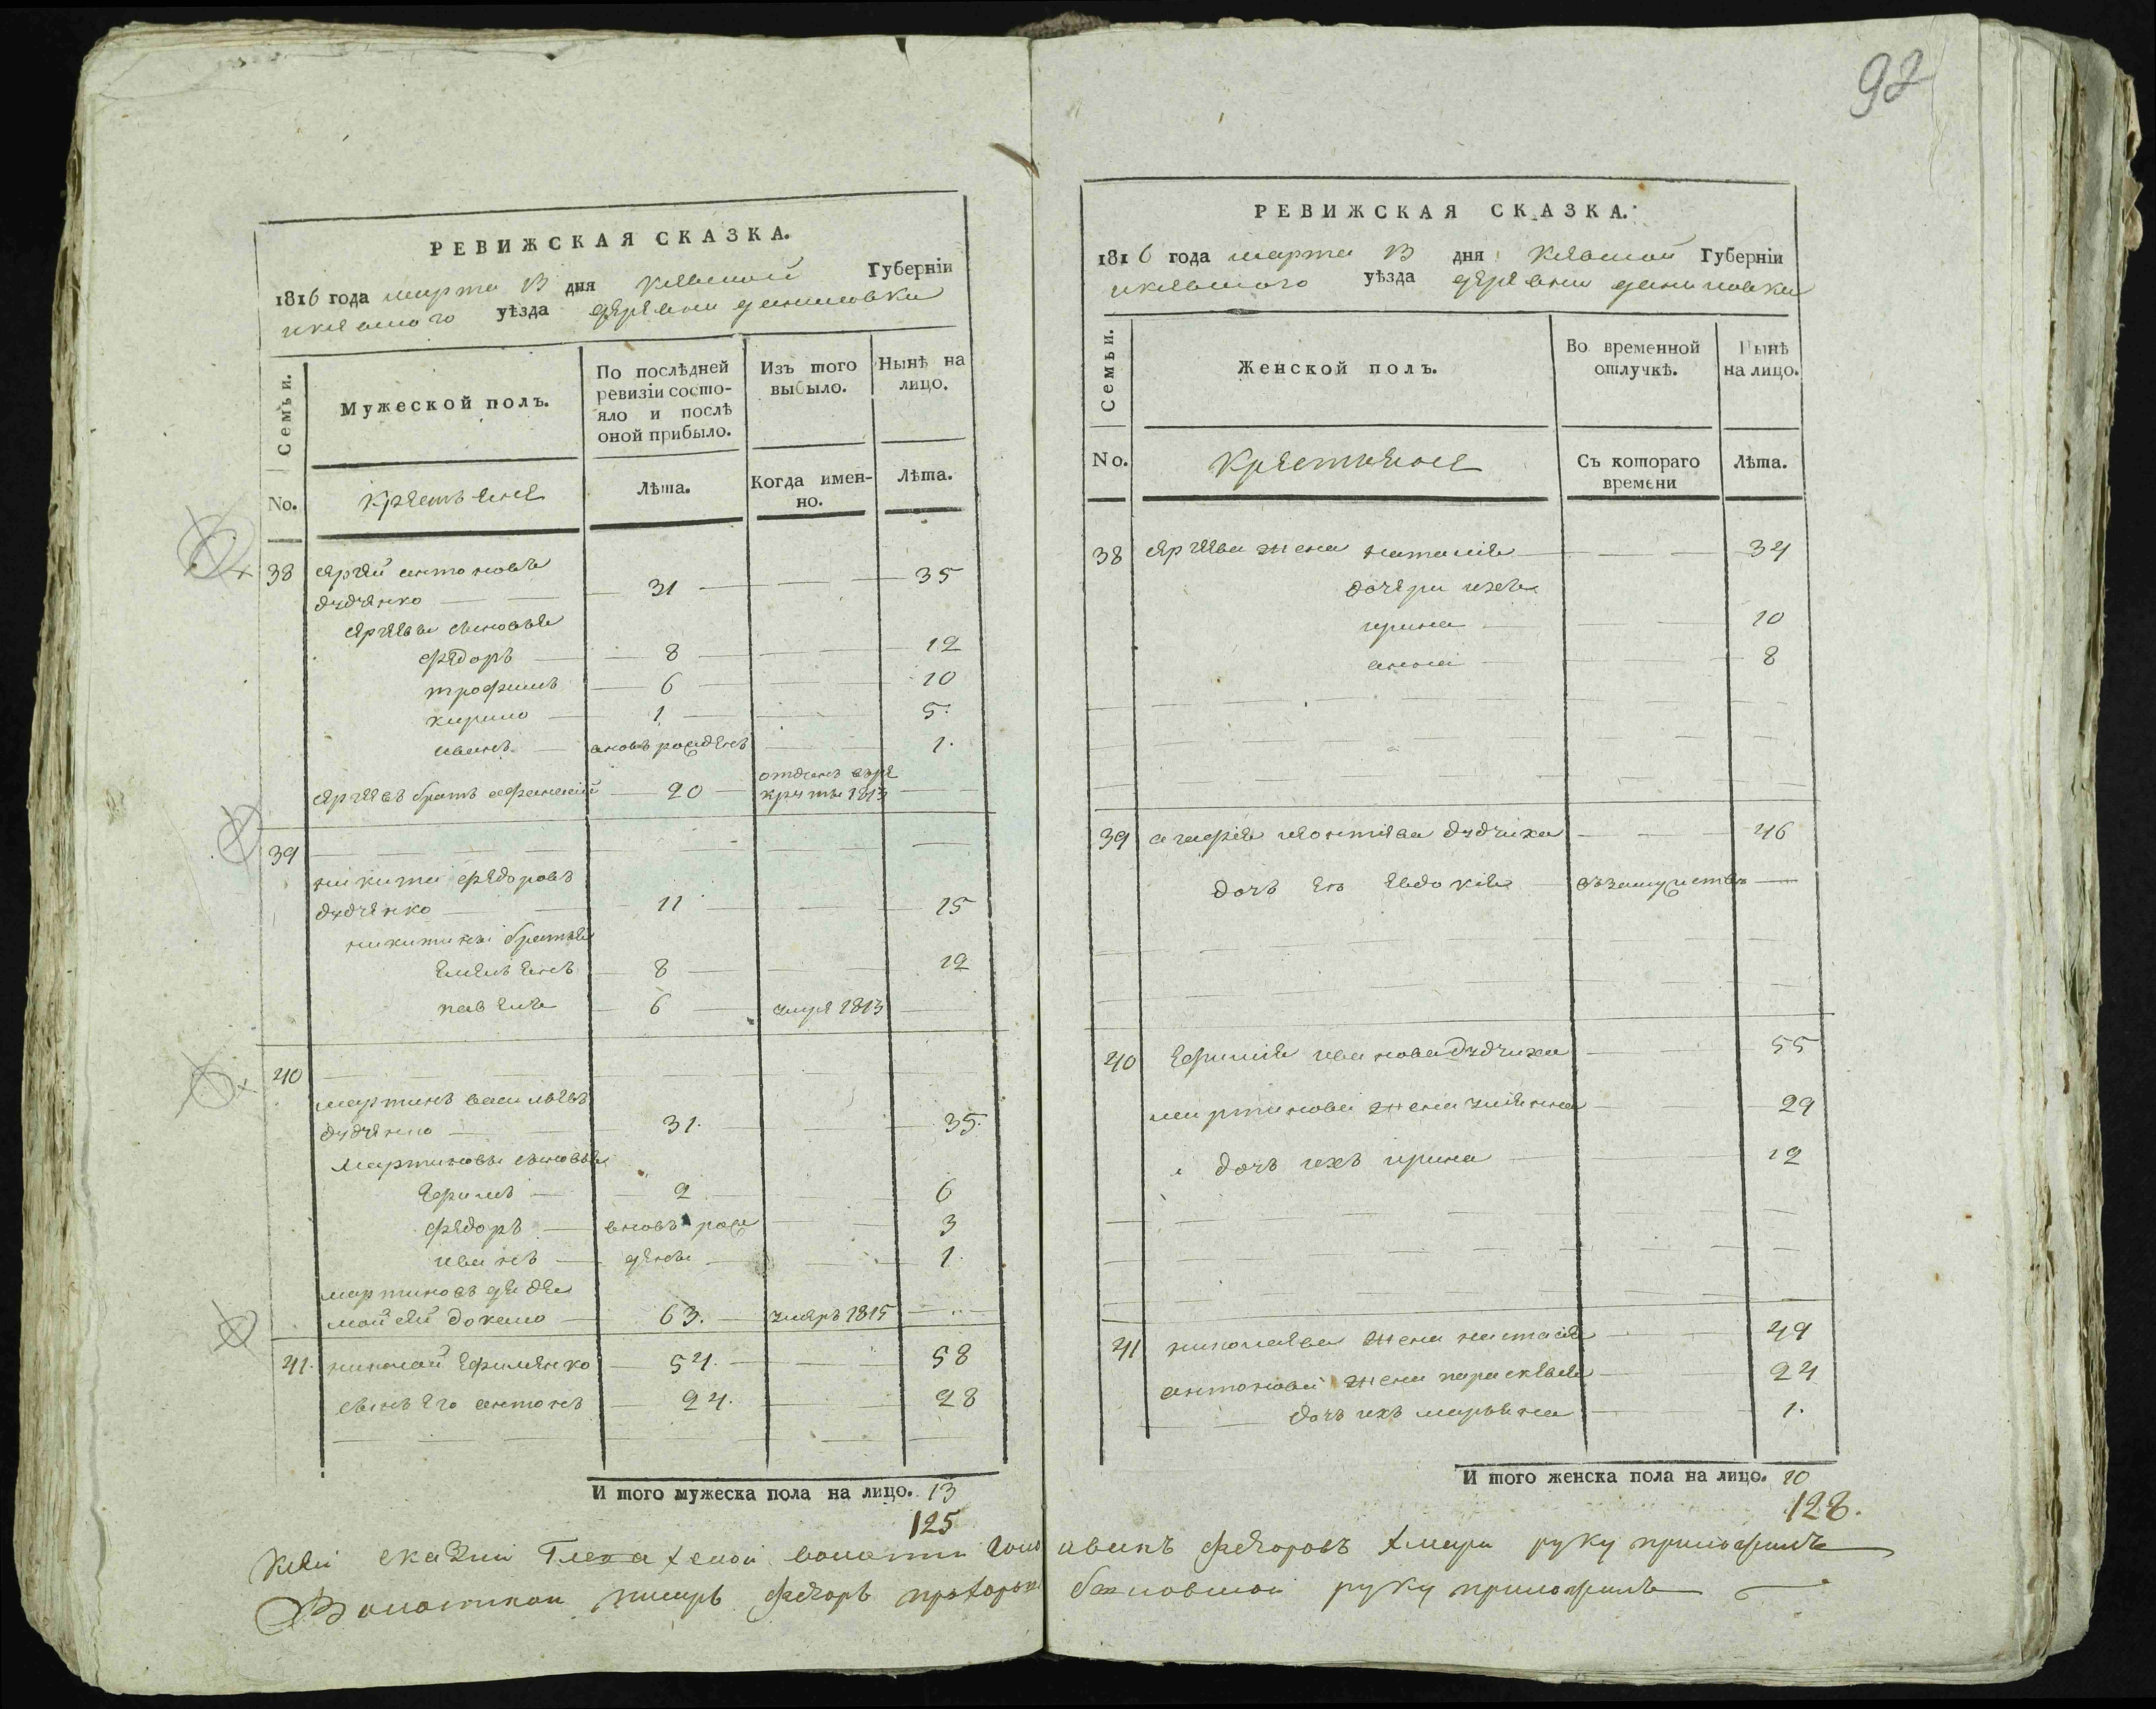 92
РЕВИЖСКАЯ СКАЗКА.
1816 года марта 13 дня Киевской Губерніи
икиевского уѣзда деревни даниловки
Семьи.
Мужеской полъ.
По послѣдней ревизіи состояло и послѣ оной прибыло.
Изъ того выбыло.
Нынѣ на лицо.
No.
Крестьяне
Лѣта.
Когда именно.
Лѣта.
38 сергей антоновъ
дудченко 31 35
сергеевы сыновья
федоръ 8 12
трофимъ 6 10
кирило 1 5.
иванъ вновь рожденъ 1.
сергеевъ братъ афанасий 20 отданъ в ре
круты 1813
39
никита федоровъ
дудченко 11 15
никитины братья
емельянъ 8 12
павелъ 6 умре 1813
40
мартинъ васильевъ
дудченко 31. 35.
Мартиновы сыновья
Ефимъ 2 6
федоръ вновь рож 3
иванъ дены 1.
мартиновъ дядя
мойсей 63. умеръ 1815
41. николай Ефименко 54. 58
сынъ его антонъ 24. 28
И того мужеска пола на лицо. 13
125
РЕВИЖСКАЯ СКАЗКА.
1816 года марта 13 дня Киевской Губерніи
икиевского уѣзда деревни даниловки
Семьи.
Женской полъ.
Во временной отлучкѣ.
Нынѣ на лицо.
No.
Крестьяне
Съ котораго времени
Лѣта.
38 сергеева жена наталия 34
дочери ихъ
ирина 10
анна 8
39 агафия леонтиева дудчиха 46
дочь ея евдокия взамужстве
40 Ефимия иванова дудчиха 55
мартинова жена улияна 29
дочь ихъ ирина 12
41 николаева жена настасия 49
антонова жена параскевия 24
дочь ихъ марьяна 1.
И того женска пола на лицо. 10
128.
Ксей сказки волости голо ивинъ федоровъ руку приложилъ
Волостной писарь федоръ руку приложилъ